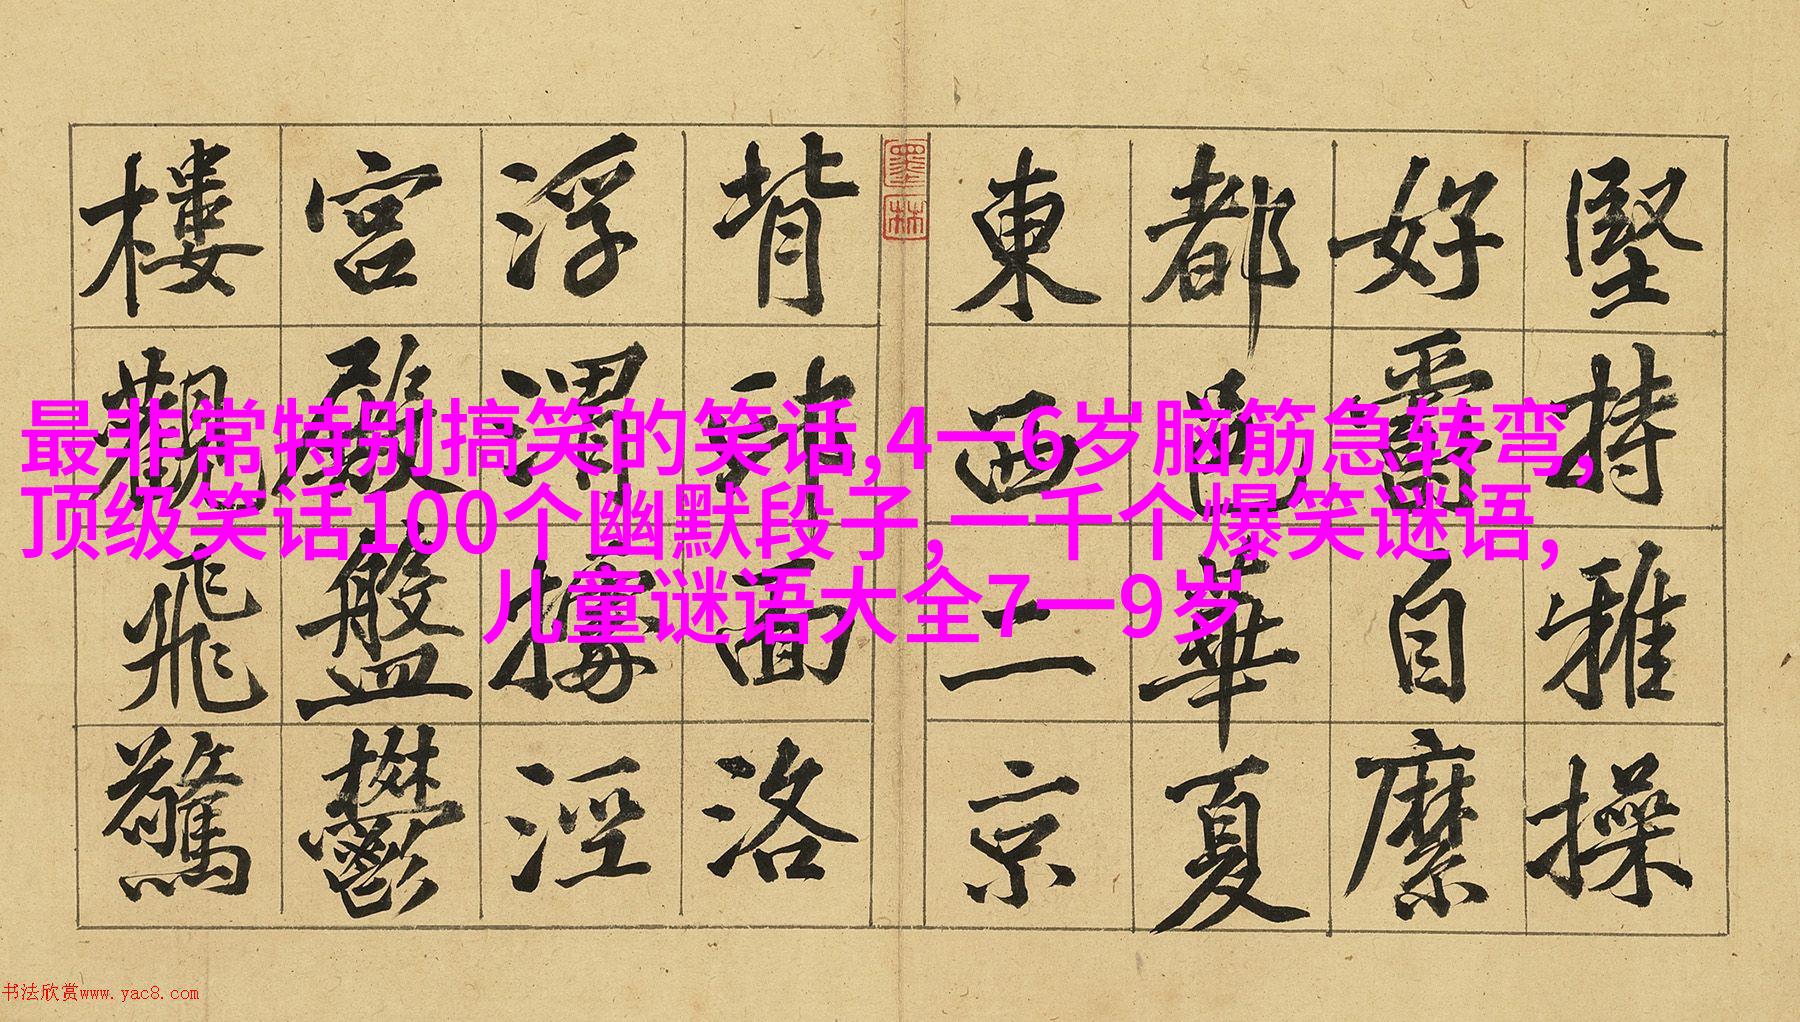 堅持雅操
好爵自縻
都邑華夏
東西二京
背邙面洛
浮渭據涇
宮殿盤鬱
樓觀飛驚
墨林
最非常特别搞笑的笑话,4一6岁脑筋急转弯,
顶级笑话100个幽默段子,一千个爆笑谜语,
儿童谜语大全7一9岁
书法欣赏www.yac8.com